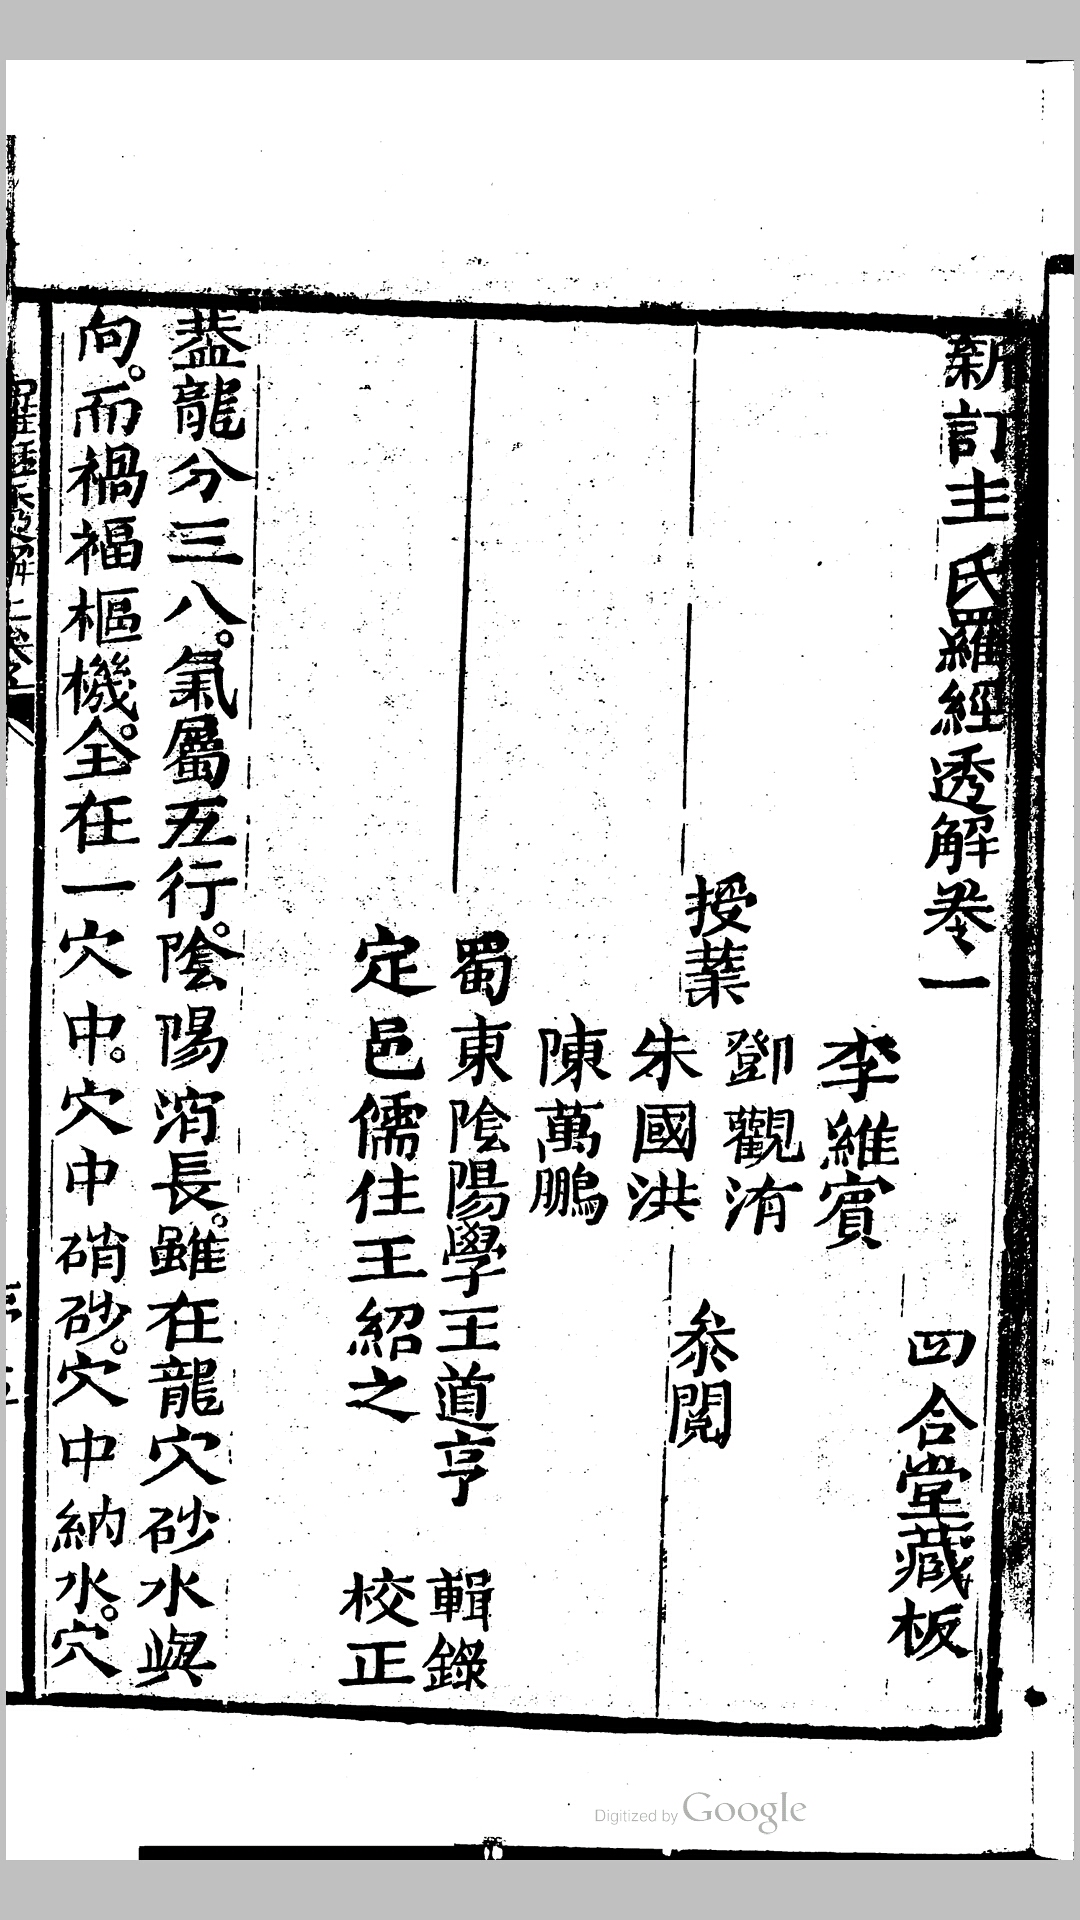 新訂主氏羅經透解卷一
四合堂藏板
李維賓
鄧觀洧
授業
朱國洪
叅閱
陳萬鵬
蜀東陰陽學王道亨 輯錄
定邑儒住王紹之 校正
葢龍分三八。氣屬五行。陰陽消長。雖在龍穴砂水與
向。而禍福樞機。全在一穴中。穴中硝砂。穴中納水。穴
Digitized by Google